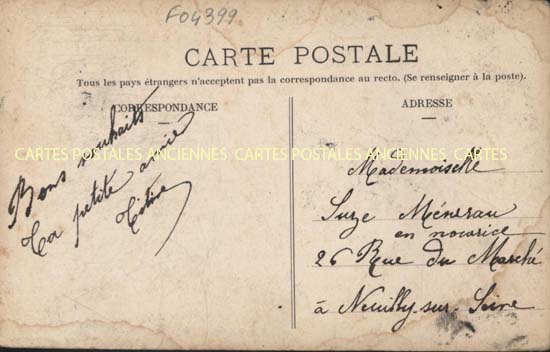 F04399
CARTE POSTALE
Tous les pays étrangers n'acceptent pas la correspondance au recto. (Se renseigner à la poste).
CORRESPONDANCE
ADRESSE
CARTES POSTALES ANCIENNES CARTES POSTALES ANCIENNES
Bons souhaits
ta petite amie
Mademoiselle
Suze
en
26 Rue du Marché
à Neuilly-sur-Seine